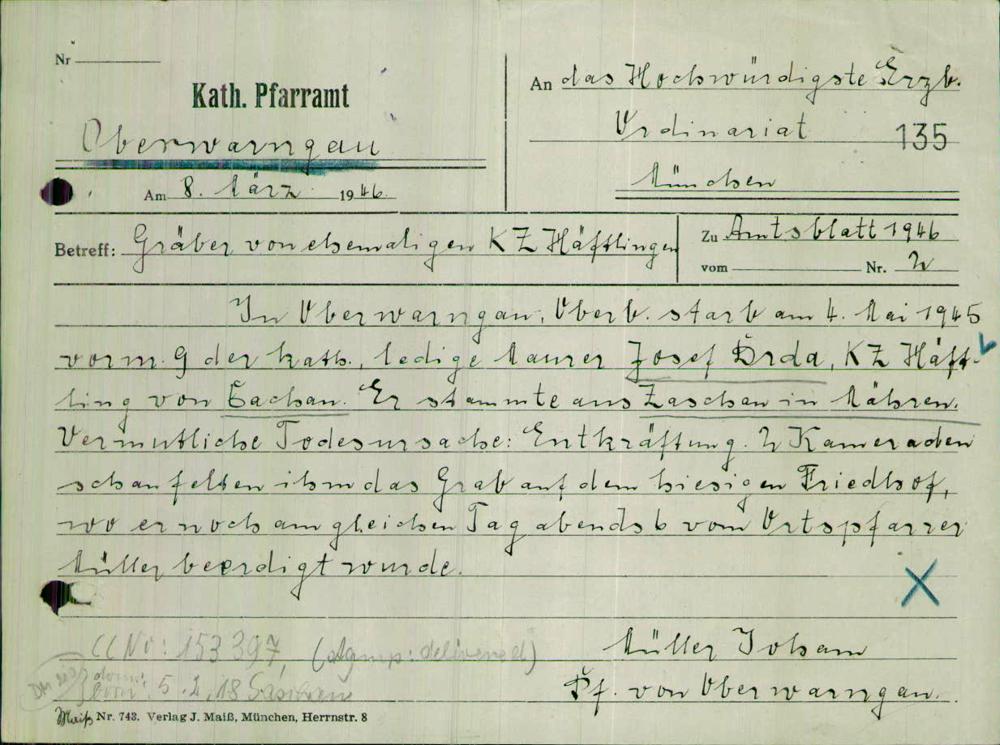 Nr
Kath. Pfarramt
Oberwarngau
Am 8. März 1946.
An das Hochwürdigste Erzb.
Ordinariat 135
München
Betreff: Gräber von ehemaligen KZ Häftlingen
Zu Amtsblatt 1946
vom Nr. 2
In Oberwarngau, Oberb. starb am 4. Mai 1945
vorm. 9 der kath., ledige Maurer Josef Brda, KZ Häft-
ling von Dachau. Er stammte aus Zaschau in Mähren.
Vermutliche Todesursache: Entkräftung. 2 Kameraden
schaufelten ihm das Grab auf dem hiesigen Friedhof,
wo er noch am gleichen Tag abends 6 vom Ortspfarrer
Müller beerdigt wurde.
X
CC No: 153397, (stamp: delivered)
born: 5.2.18
Müller Johann
Pf. von Oberwarngau.
Maiß Nr. 743. Verlag J. Maiß, München, Herrnstr. 8